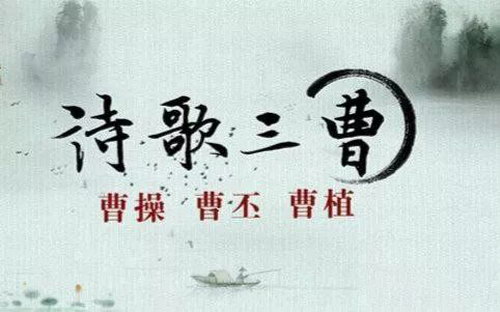 诗歌三曹
曹操 曹丕 曹植